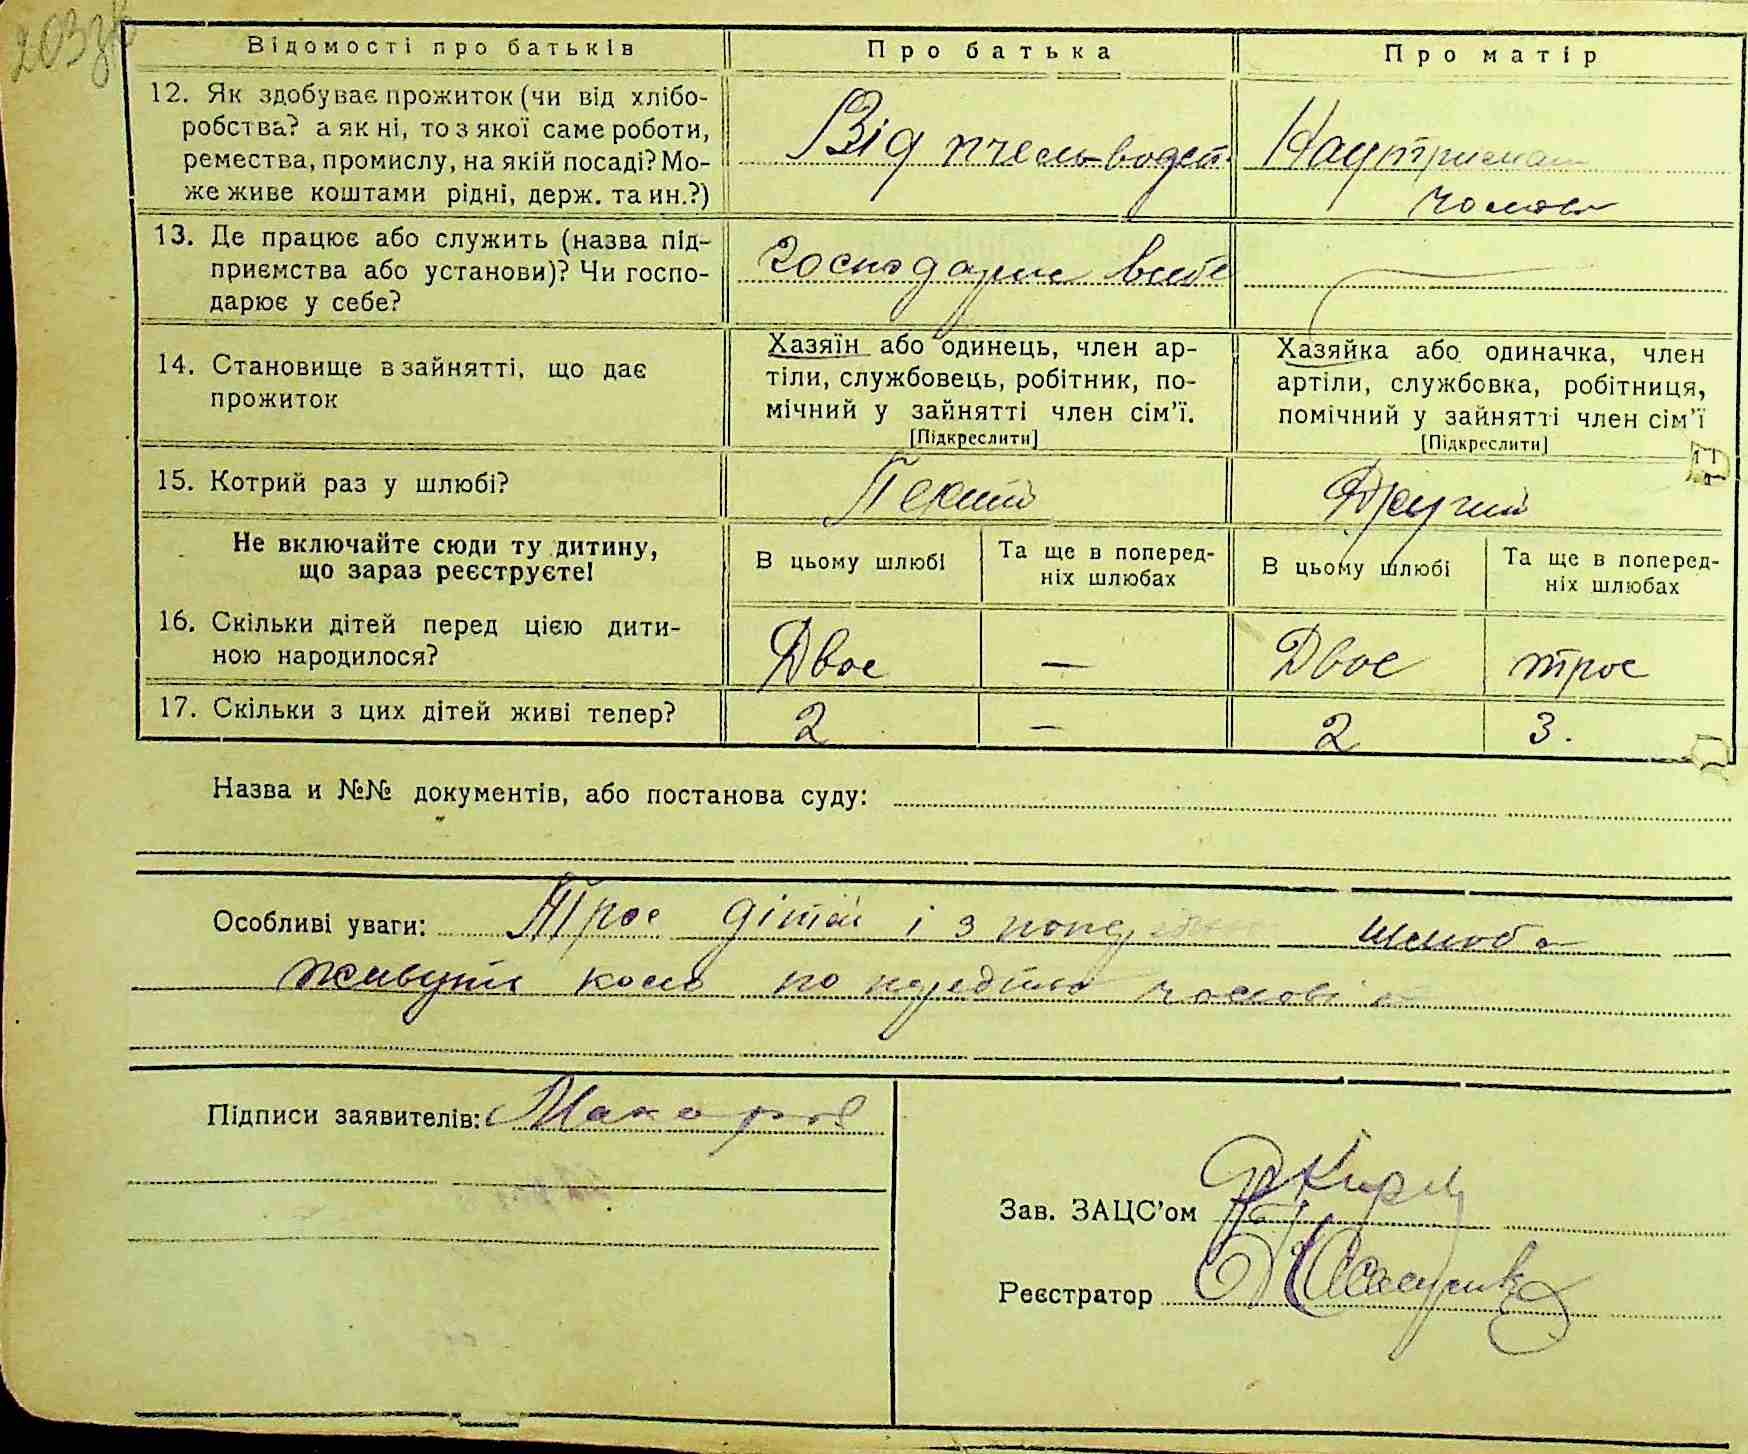 203зв
Відомості про батьків
Про батька
Про матір
12. Як здобуває прожиток (чи від хлібо-
робства? а як ні, то з якої саме роботи,
ремества, промислу, на якій посаді? Мо-
же живе коштами рідні, держ. та ин.?)
Від пчельводст.
На утриман
чолов
13. Де працює або служить (назва під-
приємства або установи)? Чи госпо-
дарює у себе?
господарює в себе
14. Становище в зайнятті, що дає
прожиток
Хазяїн або одинець, член ар-
тіли, службовець, робітник, по-
мічний у зайнятті член сім'ї.
[Підкреслити]
Хазяйка або одиначка, член
артіли, службовка, робітниця,
помічний у зайнятті член сім'ї
[Підкреслити]
15. Котрий раз у шлюбі?
Другий
Не включайте сюди ту дитину,
що зараз реєструєте!
В цьому шлюбі
Та ще в поперед-
ніх шлюбах
В цьому шлюбі
Та ще в поперед-
ніх шлюбах
16. Скільки дітей перед цією дити-
ною народилося?
Двоє
—
Двоє
троє
17. Скільки з цих дітей живі тепер?
2
—
2
3.
Назва и №№ документів, або постанова суду:
Особливі уваги: Троє дітей і з шлюба
живуть коло чолові
Підписи заявителів: Макаров
Зав. ЗАЦС'ом
Реєстратор